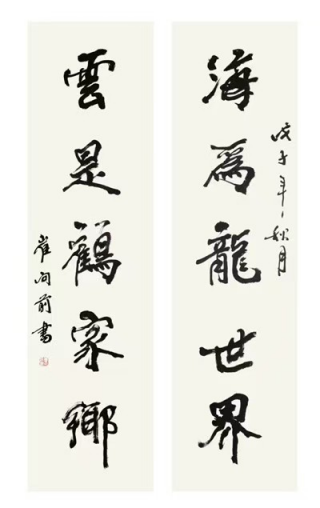 海為龍世界
戊子年秋月
雲是鶴家鄉
崔向前書